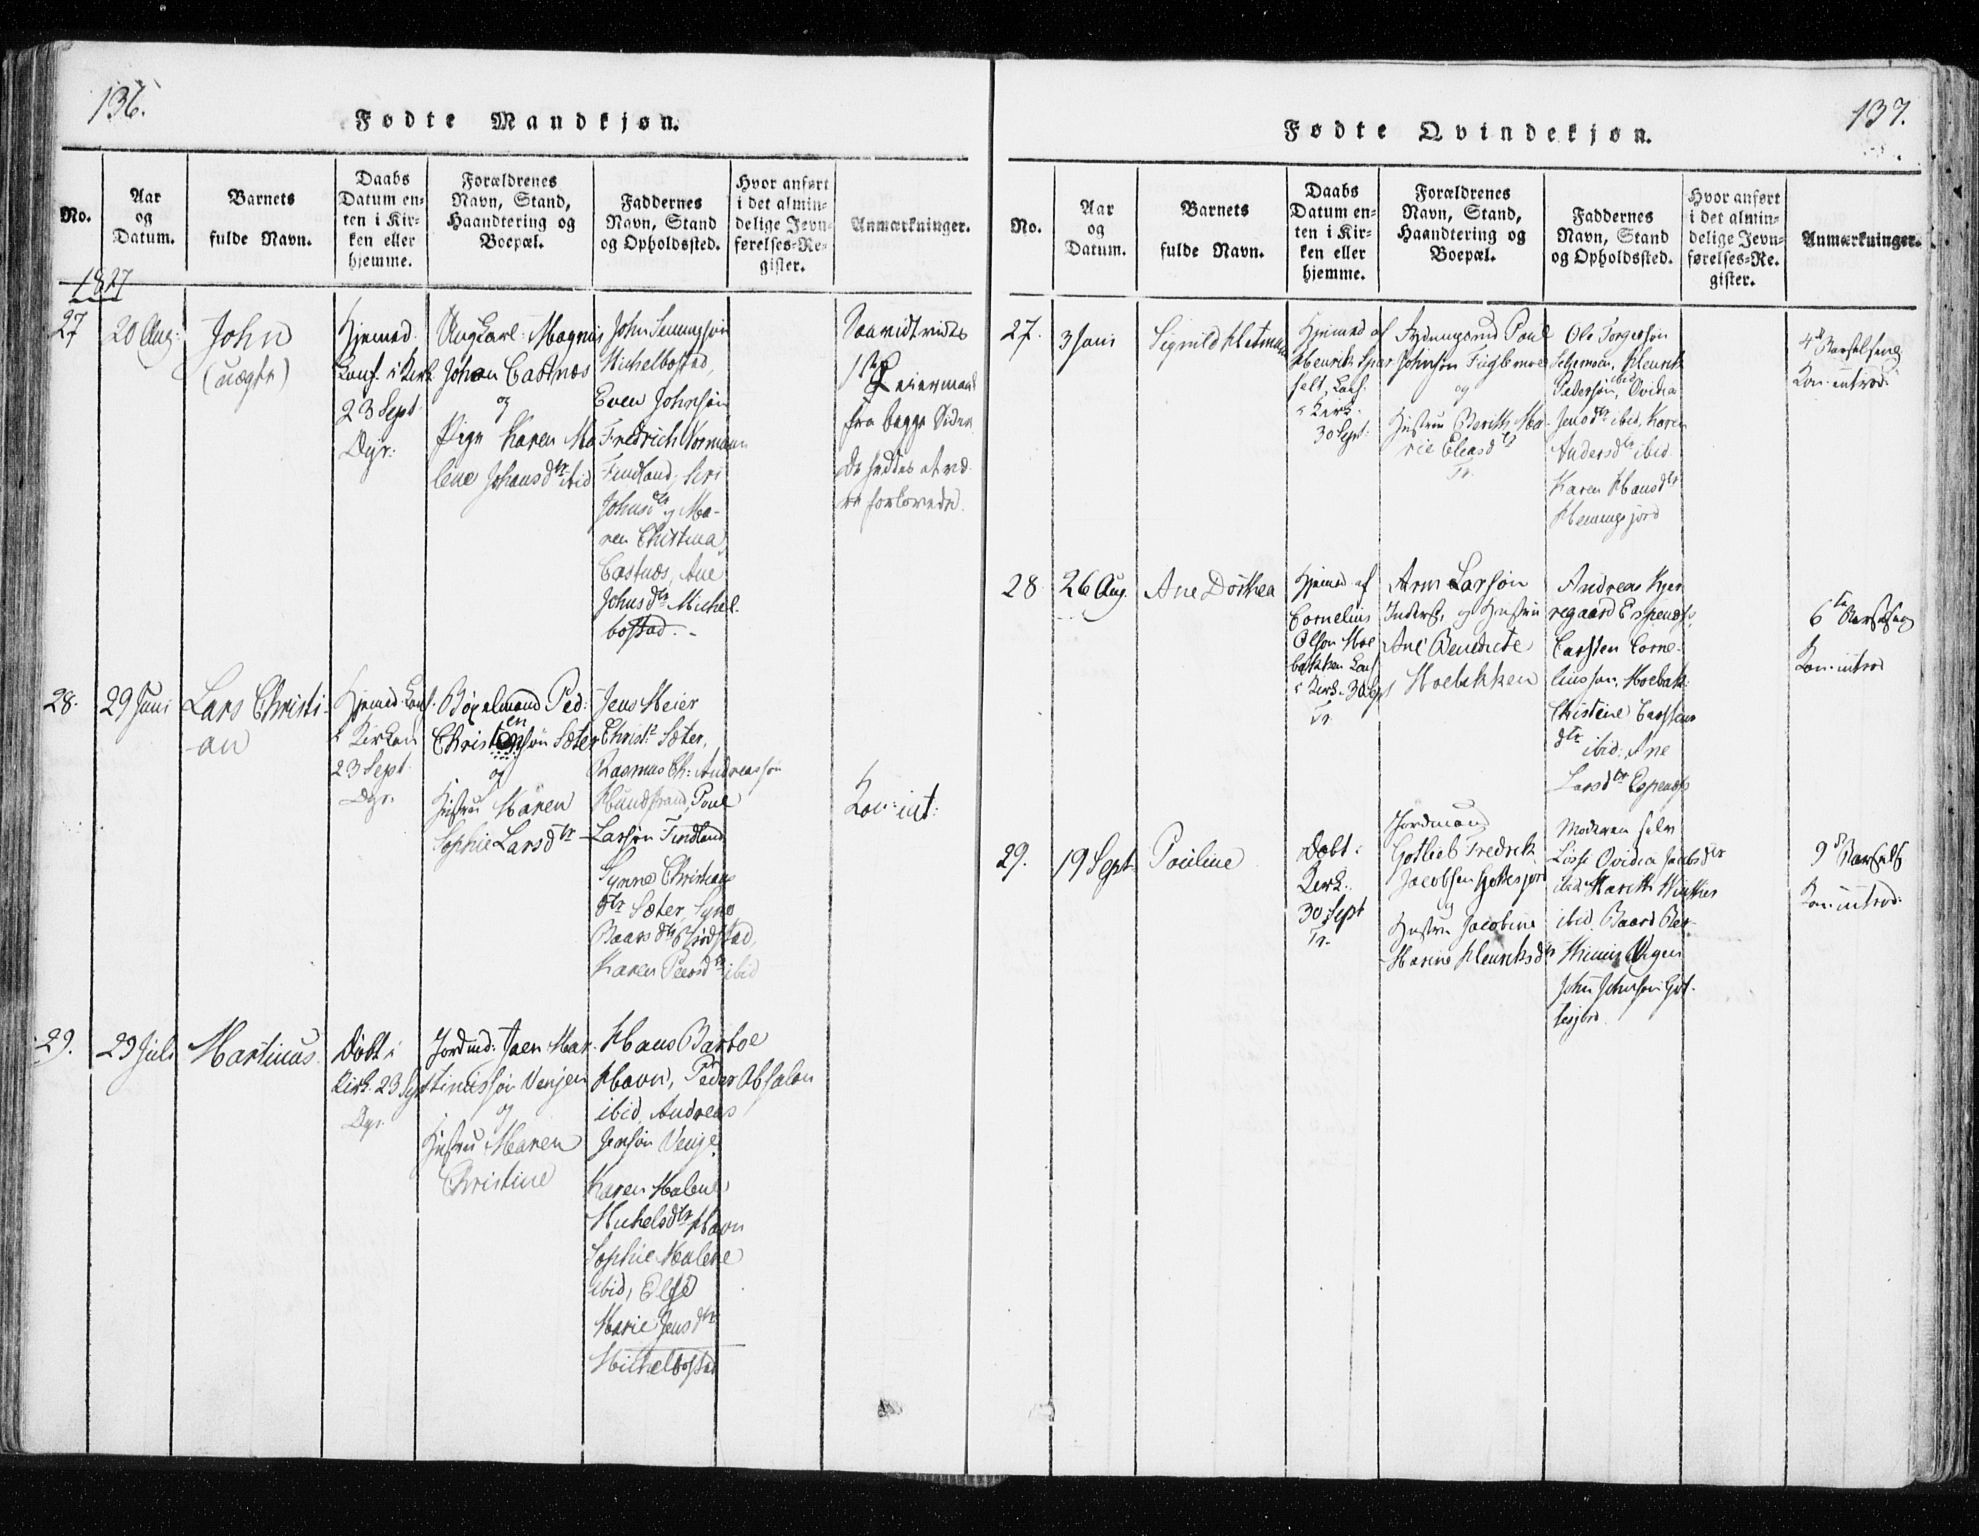 136.
Fødte Mandkjøn.
No.
Aar
og
Datum.
Barnets
fulde Navn.
Daabs
Datum en-
ten i Kir-
ken eller
hjemme.
Forældrenes
Navn, Stand,
Haandtering og
Boepæl.
Faddernes
Navn, Stand
og Opholdssted.
Hvor anført
i det almin-
delige Jevn-
førelses-Re-
gister.
Anmærkninger.
1827
27
20 Aug:
John
(uægte)
Hjemed.
Conf. i Kirk
23 Sept.
Dyr:
Ungkarl: Magnus
Johan Castnæs
og
Pige Karen Ma
lene Johansdtr ibid
John
Michelbostad,
Even Johnsøn
Fredrich Normann
Findland,
Johnsdtr, Ma-
ren Christina
Castnæs, Ane
Johnsdtr Michel-
bostad.
Saavidt vides
1ste Leiermaal
fra begge Sider
De hedtes at væ-
re forlovede.
28.
29 Juni
Lars Christi-
-an
Hjemed. Conf.
i Kirken
23 Sept.
Dyr.
Ped:
Christensøn Sæter
og
Hustru Maren
Sophie Larsdtr
Jens Meier
Christ: Sæter,
Rasmus Ch: Andreassøn
Hundstrand, Poul
Larsøn Findland
Synne Christians
dtr Sæter, Syno
Baarsdtr
Karen Peersdtr ibid
Kon: int:
29.
29 Juli
Martinus.
Døbt i
Kirk. 23 Sept
Dyr.
Jordmd: Jaen Mar-
tinussøn Venjen
og
Hustru Maren
Christine
Hans Barboe
Havn, Peder Absalon
ibid, Andreas
Jensøn Venje
Karen Malene
Michelsdtr Havn
Sophie Malene
ibid, Else
Marie Jensdtr
Michelbostad
137.
Fødte Qvindekjøn.
No.
Aar
og
Datum.
Barnets
fulde Navn.
Daabs
Datum en-
ten i Kir-
ken eller
hjemme.
Forældrenes
Navn, Stand,
Haandtering og
Boepæl.
Faddernes
Navn, Stand
og Opholdssted.
Hvor anført
i det almin-
delige Jevn-
førelses-Re-
gister.
Anmærkninger.
27.
3 Juni
Hjemed af
Henrik
felt, Conf.
i Kirk.
30 Sept:
Poul
Johnsøn
og
Hustru Berith Ma-
rie Eliasdtr
Tr.
Ole Torgersøn
Selgemoen, Henrik
Pedersøn ibid, Ovidia
Jensdtr ibid, Karen
Andersdtr ibid
Karen Hansdtr
Hemmingsjord
4de Barselseng
Kon. introd:
28
26 Aug.
Ane Dorthea
Hjemed af
Cornelius
Olsøn Moe
bakken Conf
i Kirk. 30 Sept
Tr.
Arn Larsøn
Inderst, og Hustru
Ane Benedicte
Moebakken
Andreas Kjer
regaard Espenæs,
Carsten Corne-
liussøn, Moebak:
Christine Carstens
dtr ibid, Ane
Larsdtr Espenæs
6te Barselseng
Kon: introd
29.
19 Sept
Pouline
Døbt i
Kirk.
30 Sept
Tr.
Jordmand
Gotlieb Fredrik
Jacobsen Gottesjord
og
Hustru Jacobine
Marine Henriksdtr
Moderen selv
Ovidia Jacobsdtr
ibid. Marith
ibid. Baard Ber-
John Johnsøn Got-
tesjord
9de Barselsg
Kon: introd: